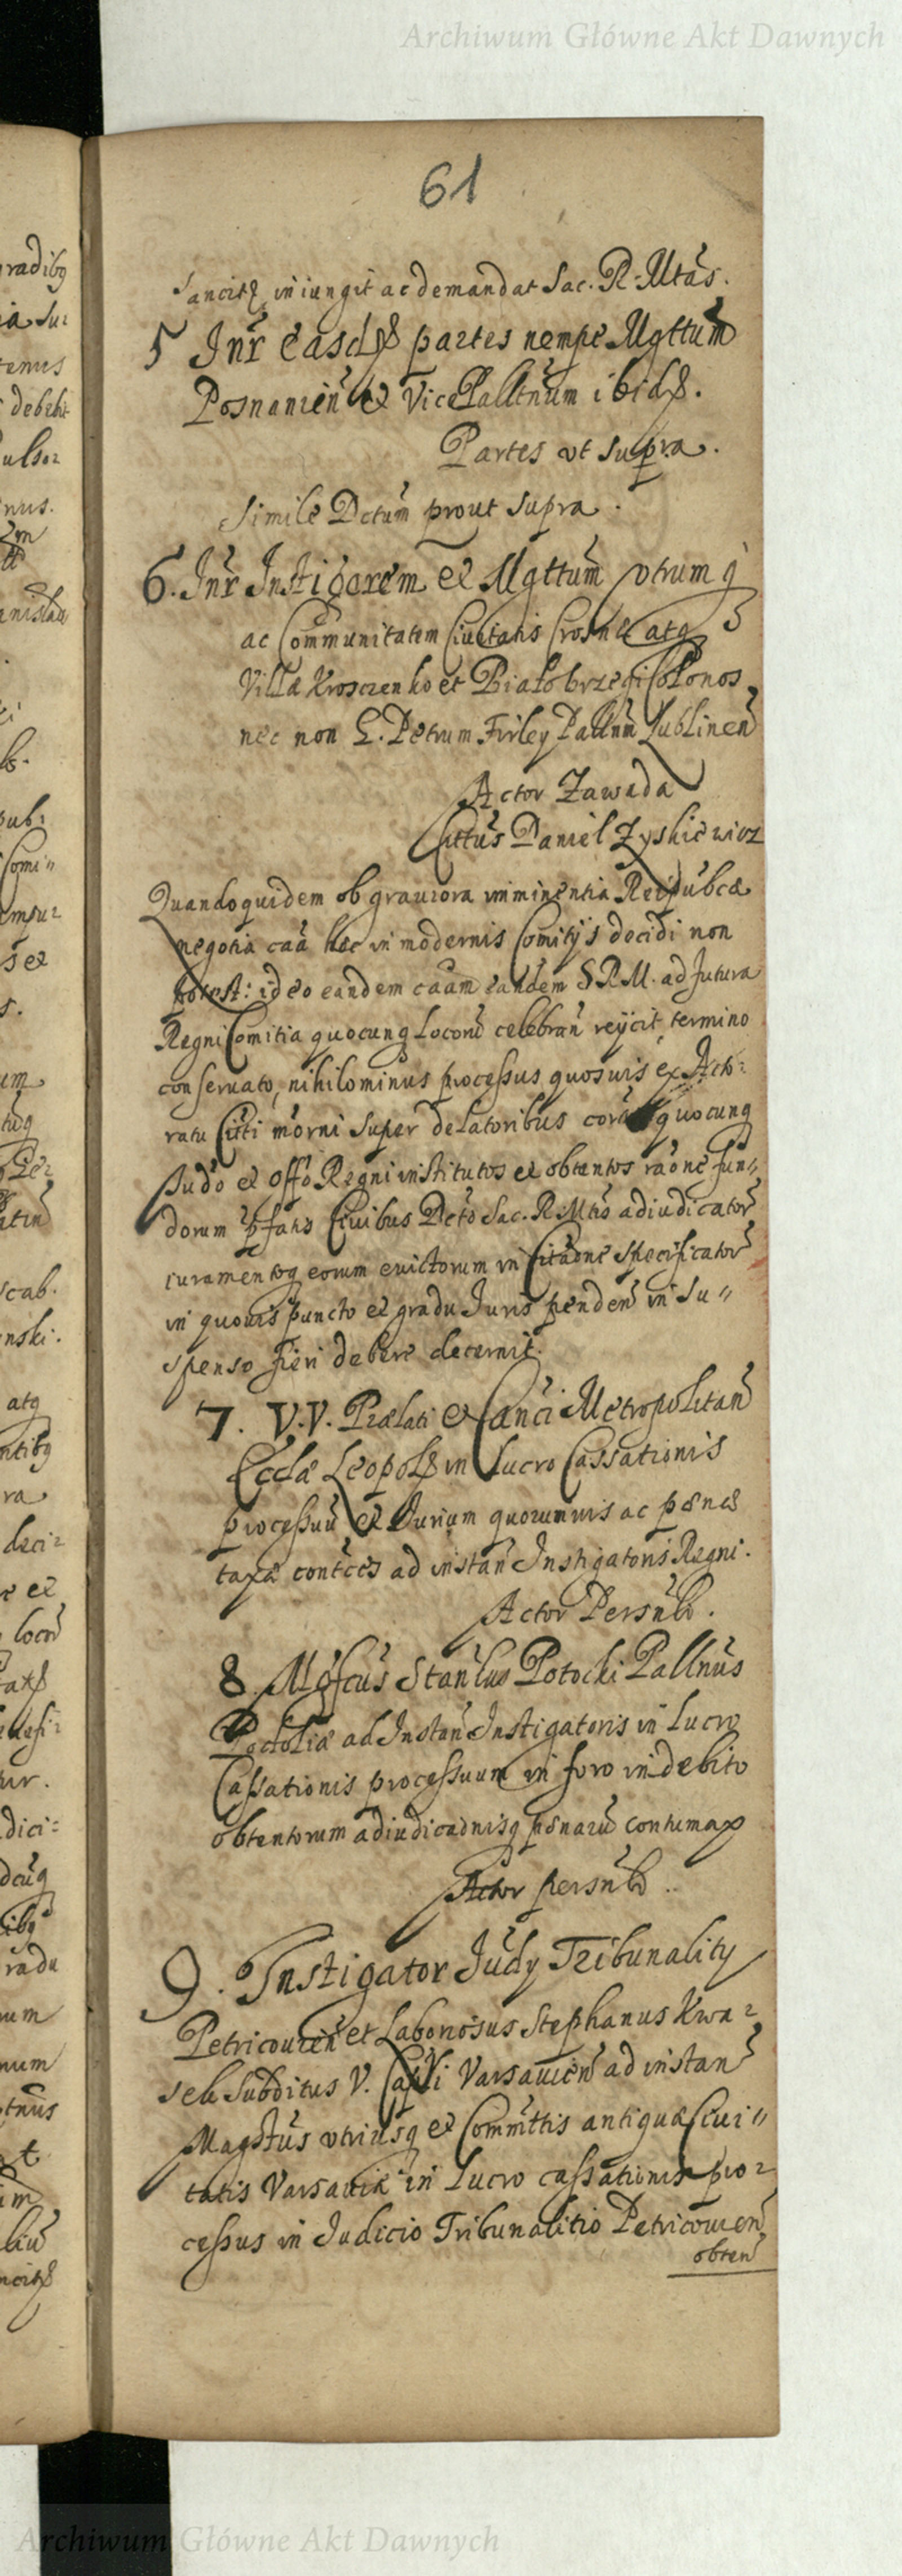 Archiwum Główne Akt Dawnych
61
sancitę iniungit ac demandat Sac. R. Mtas.
5 Inr easd partes nempe Mgttum
Posnanien et Vice Pallnum ibid.
Partes ut supra.
Simile Dctum prout supra.
6. Inr Instigorem et Mgttum utrumq
ac Communitatem Civitatis Crosnę atq
Villæ Krosczenko et Białobrzegi Colonos
nec non G. Petrum Firley Pallnm Lublinen
Actor Zawada
Cittus Daniel Zyskiewicz
Quandoquidem ob graviora imminentia Reipubcæ
negotia caa hæc in modernis Comitijs decidi non
potest: ideo eandem caam eandem S.R.M. ad futura
Regni Comitia quocunq locorū celebran reijcit, termino
conservato, nihilominus processus quosuis ex Acto:
ratu Citti morni super delatoribus cora quocunq
Judo et Offo Regni institutos et obtentos raone fun„
dorum pfatis Civibus Dcto Sac. R. Mtis adiudicator
iuramentoq eorum evictorum in Citaone specificator
in quouis puncto et gradu Juris penden in su„
spenso fieri debere decernit.
7. V.V. Prælati et Canci Metropolitan
Ecclæ Leopol in lucro Cassationis
processuū et Jurium quorumuis ac pœnæ
taxa contces ad instan Instigatoris Regni.
Actor Persnlr.
8. Mgfcus Stanlus Potocki Pallnus
Podoliæ ad Instan Instigatoris in lucro
Cassationis processuum in foro indebito
obtentorum adiudicaonisq pœnarū contumax
Actor persnlr.
9. Instigator Judy Tribunality
Petricouien et Laboriosus Stephanus Kwa:
sek Subditus V. Capli Varsauien ad instan
Magrtus utriusq et Commttis antiquæ Ciui„
tatis Varsauiæ in lucro cassationis pro:
cessus in Judicio Tribunalitio Petricouien
obten
Archiwum Główne Akt Dawnych